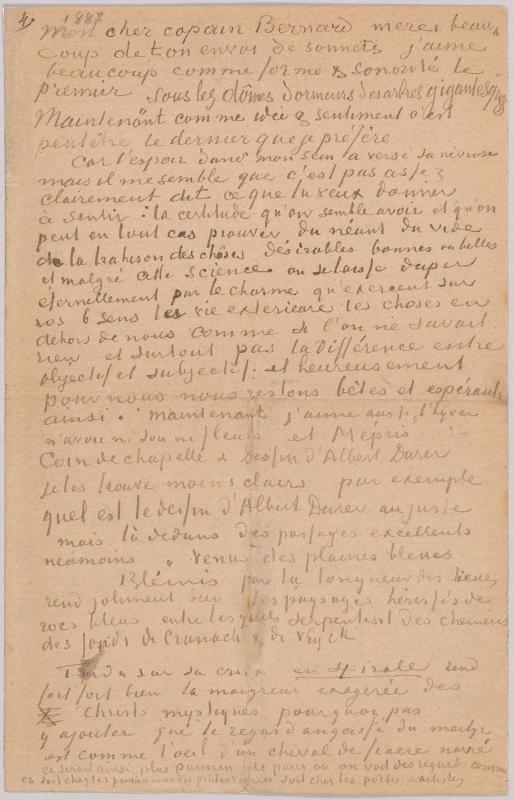 4
1887
Mon cher copain Bernard merci beau-
coup de ton envoi de sonnets j'aime
beaucoup comme forme & sonorité le
premier sous les dômes dormeurs des arbres gigantesques
Maintenant comme idée & sentiment c'est
peutêtre le dernier que je préfère
Car l'espoir dans mon sein a versé sa névrose
mais il me semble que c'est pas assez
clairement dit ce que tu veux donner
à sentir : la certitude qu'on semble avoir et qu'on
peut en tout cas prouver du néant du vide
de la trahison des choses désirables bonnes ou belles
et malgré cette science on se laisse duper
éternellement par le charme qu'exercent sur
nos 6 sens la vie exterieure les choses en
dehors de nous comme si l'on ne savait
rien et surtout pas la différence entre
objectif et subjectif. et heureusement
pour nous nous restons bêtes et espérants
ainsi. maintenant j'aime aussi l'hyver
n'avoir ni sou ni fleurs et Mépris
Coin de chapelle & Dessin d'Albert Durer
je les trouve moins clairs par exemple
quel est le dessin d'Albert Durer au juste
mais là dedans des passages excellents
néamoins „ Venus des plaines bleues
Blémis par la longueur des lieues
rend joliment bien les paysages hérissés de
rocs bleus entre lesquels serpentent des chemins
des fonds de Cranach & de v Eyck
Tordu sur sa croix en spirale rend
fort fort bien la maigreur exagerée des
Christs mystiques pourquoi pas
y ajouter que le regard angoissé du martyr
est comme l'oeil d'un cheval de fiacre navré
ce serait ainsi plus parisien de paris ou on voit des regards comme
ça soit chez les des petites voitures soit chez les poètes & artistes